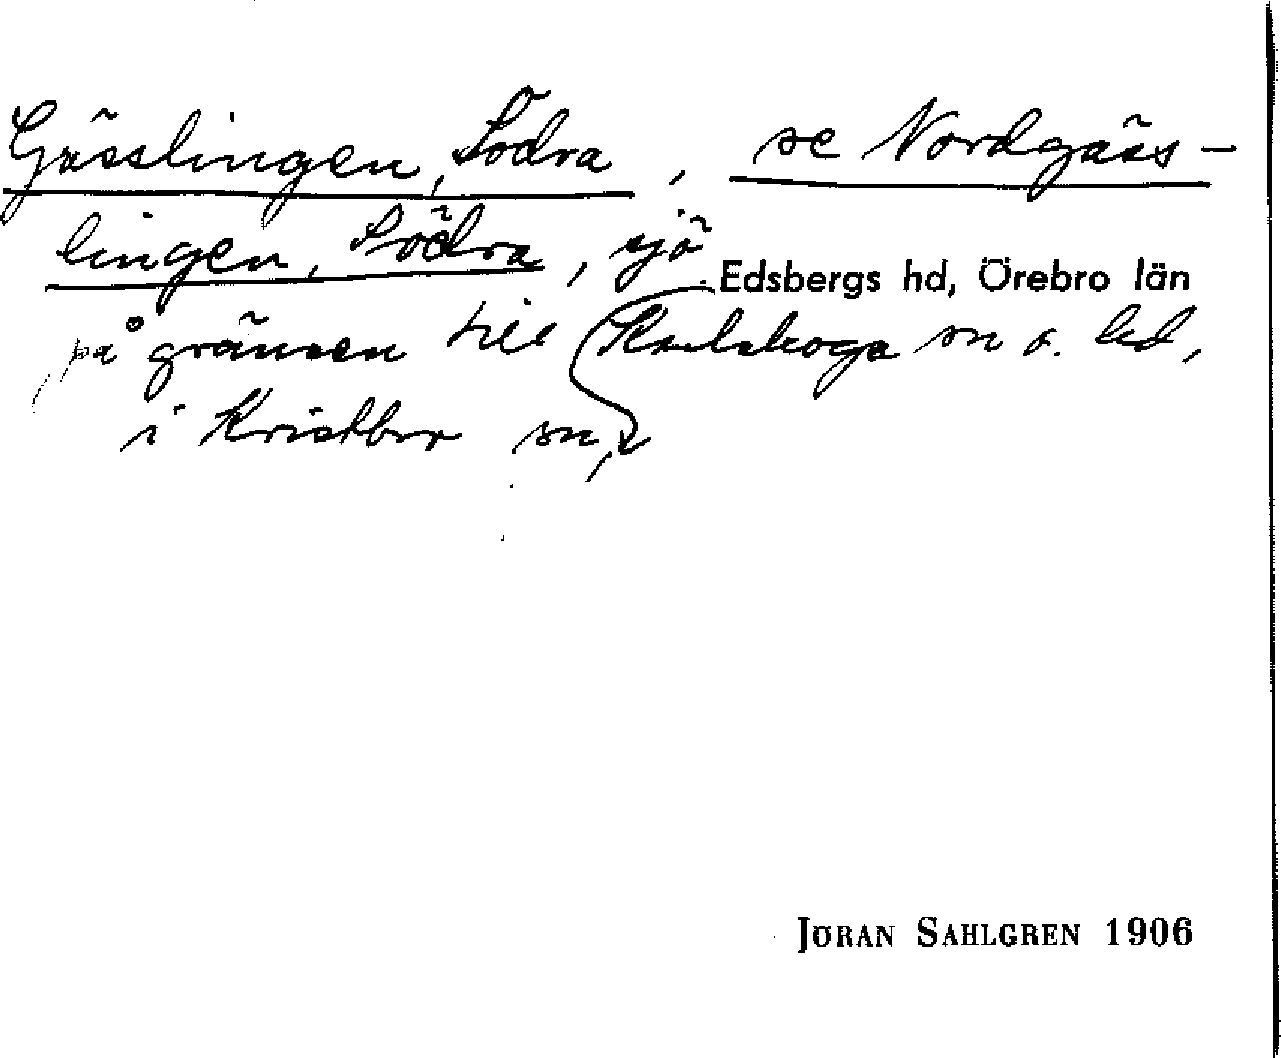 Gässlingen, Södra, se Nordgäss-
lingen, Södra, sjö
Edsbergs hd, Örebro län
på gränsen till Karlskoga sn o. hd,
i Kristbr sn,
JÖRAN SAHLGREN 1906